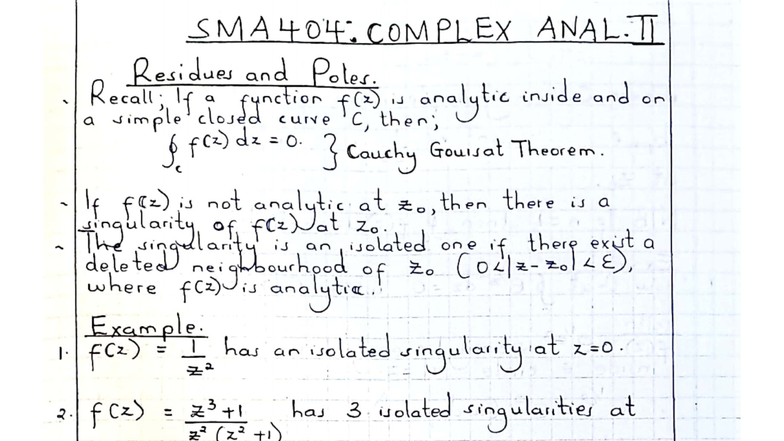 SMA 404: COMPLEX ANAL. II
Residues and Poles.
~ Recall; If a function f(z) is analytic inside and on
a simple closed curve C, then;
∮c f(z) dz = 0. } Cauchy Gouisat Theorem.
~ If f(z) is not analytic at z₀, then there is a
singularity of f(z) at z₀.
~ The singularity is an isolated one if there exist a
deleted neighbourhood of z₀ (0<|z-z₀|<ε),
where f(z) is analytic.
Example.
1. f(z) = 1/z² has an isolated singularity at z=0.
2. f(z) = z³+1/z²(z²+1) has 3 isolated singularities at